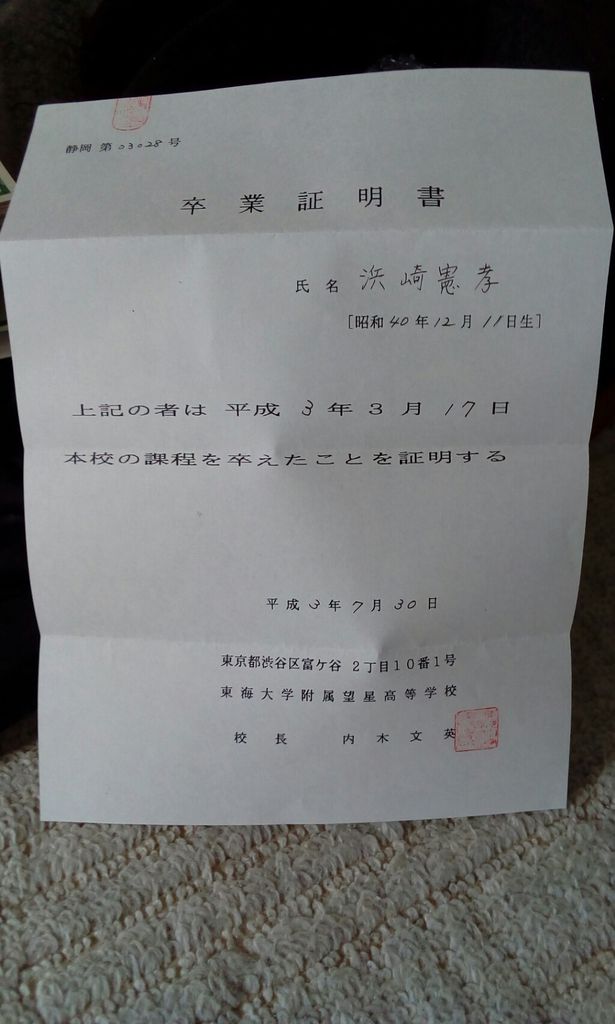 静岡 第 03028 号
卒業証明書
氏名 浜崎憲孝
[昭和40年12月11日生]
上記の者は 平成 3 年 3 月 17 日
本校の課程を卒えたことを証明する
平成 3 年 7 月 30 日
東京都渋谷区富ケ谷 2丁目10番1号
東海大学附属望星高等学校
校長 内木文英